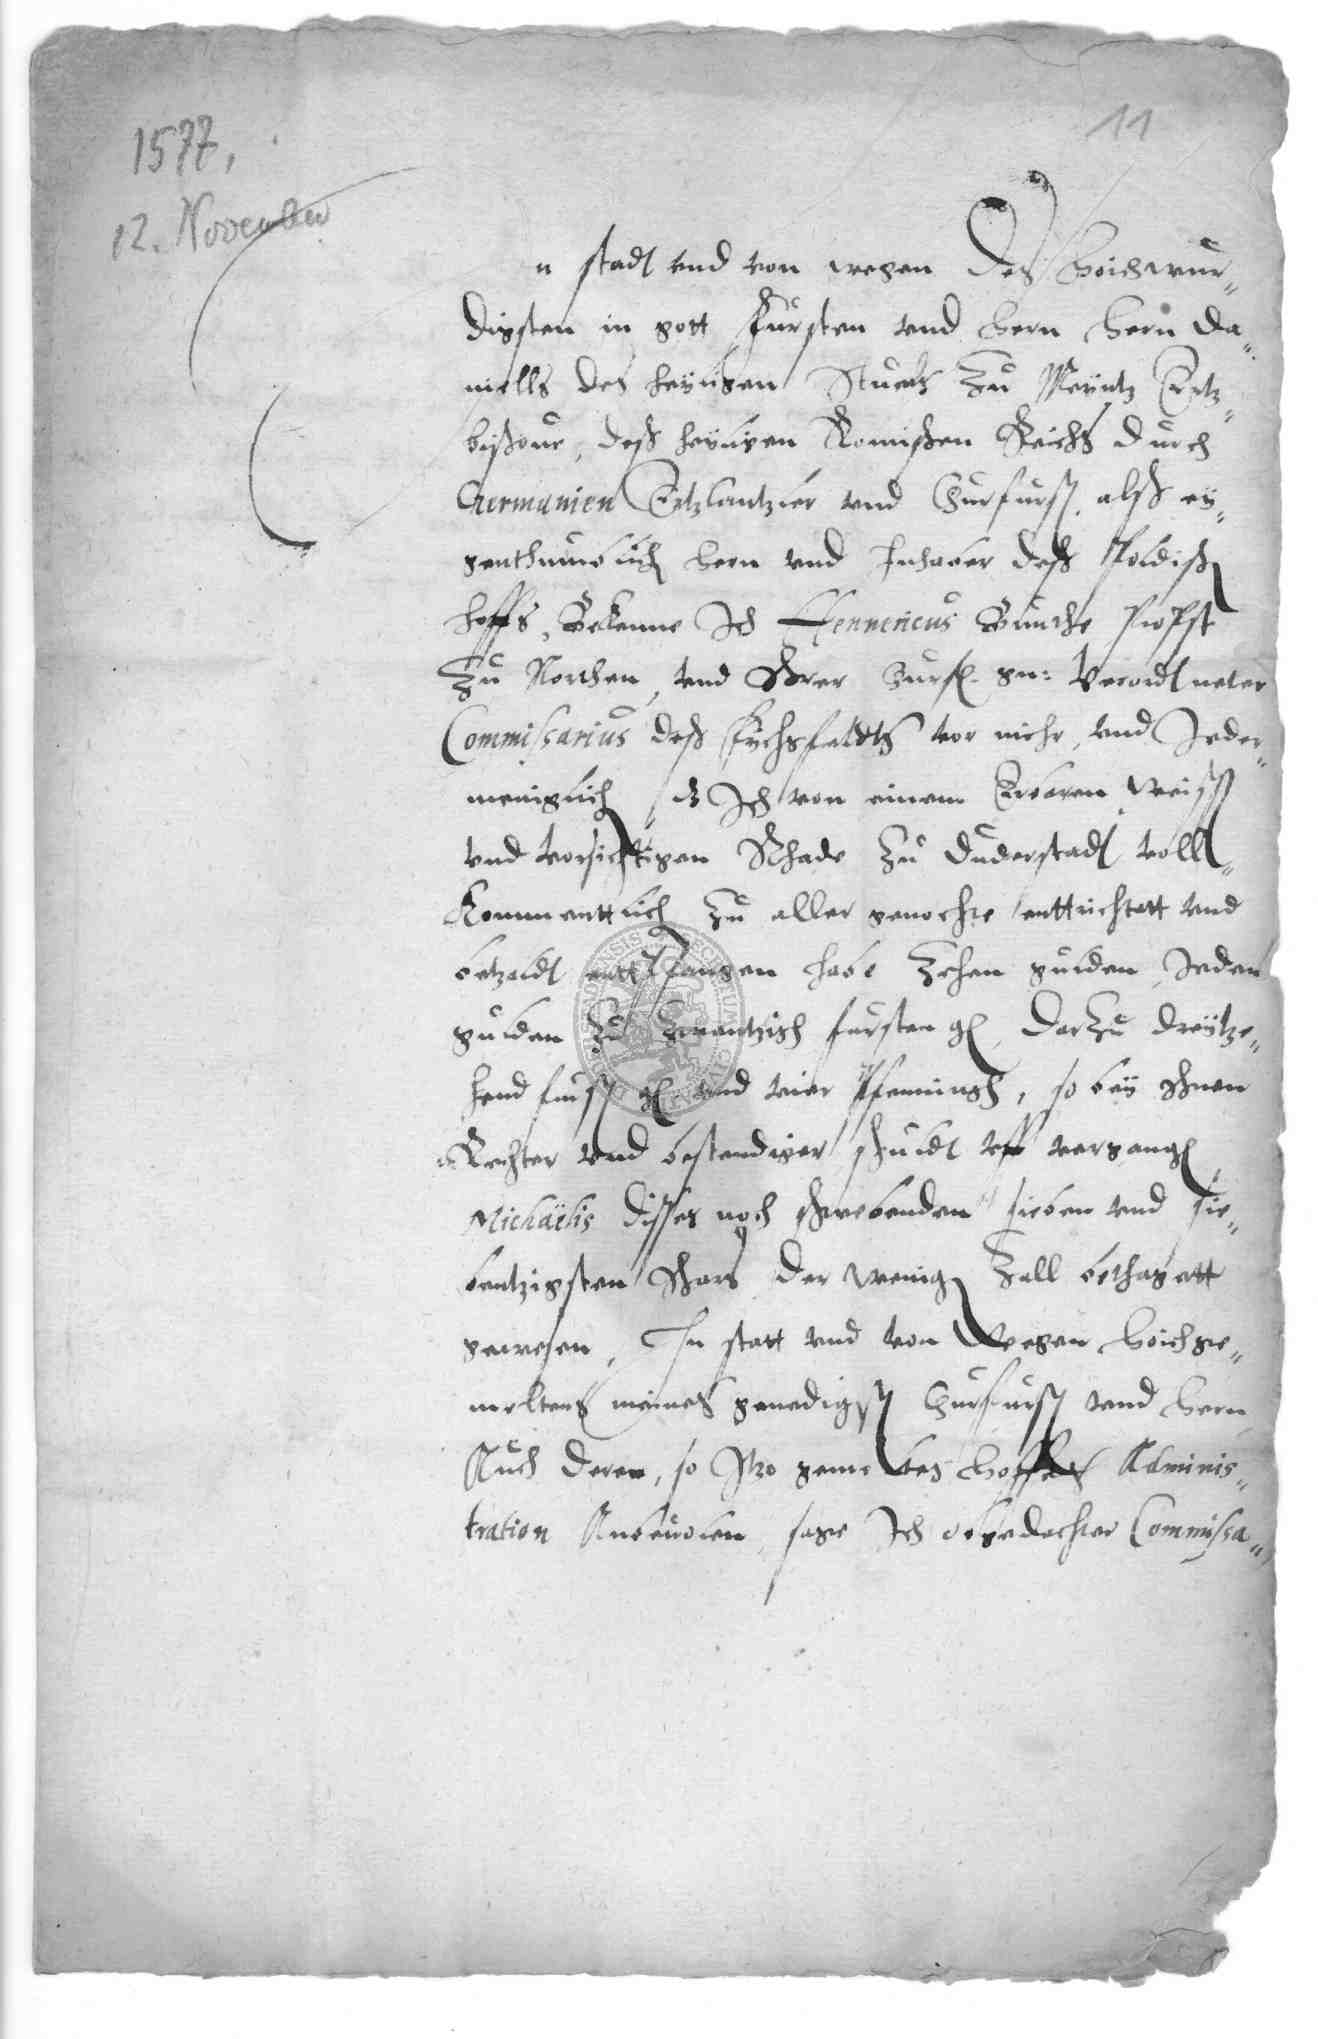 1577,
11
12. November
n stadt vnd von wegen des Hoichwur„
digsten in gott Fursten vnd Hern Hern Da„
niells des heyligen Stuels zu Meyntz Ertz„
bischoue, deß heyligen Romischen Reichs durch
Germanien Ertzkantzler vnd Churfurst, alß ey„
genthumblich Hern vnd Inhaber deß Poldisch
hoffs, Bekenne Ich Hennericus Bunthe Propst
zu Northen, vnd Ihrer Churf. gn: Verordtneter
Commissarius deß Eychsfeldts vor mehr, vnd Jeder„
meniglich, dz Ich von einem Erbaren Weiß
vnd vorsichtigen Rhade zu Duderstadt voll„
Kommenttlich zu aller genochte enttrichtett vnd
betzaldt enttpfangen habe Zehen gulden, Jeden
gulden zu zwantzigh fursten gl, darzu dreytze„
hend furst gl vnd vier Pfenningh, so bey Ihnen
Rechter vnd bestendiger schuldt vff vergangl
Michaëlis disses noch schwebenden sieben vnd sie„
bentzigsten Ihars der wenigl Zall bethagett
gewesen, In statt vnd von wegen hoichge„
meltens meines genedigst Churfurst vnd Hern,
Auch deren, so Itzo gemeltes Hoffes Adminis„
tration Anbeuolen, sage Ich obgedachter Commissa„